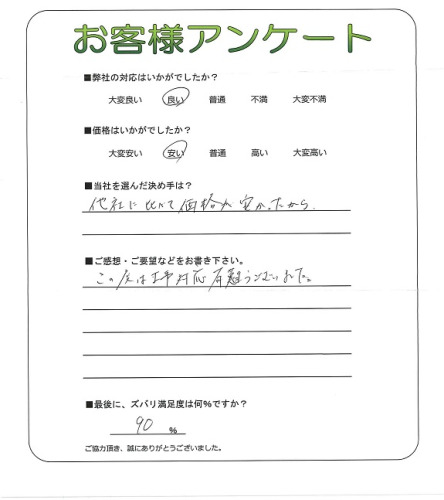 お客様アンケート
■弊社の対応はいかがでしたか？
大変良い 良い 普通 不満 大変不満
■価格はいかがでしたか？
大変安い 安い 普通 高い 大変高い
■当社を選んだ決め手は？
他社に比べて価格が安かったから
■ご感想・ご要望などをお書き下さい。
この度は工事対応有難うございました。
■最後に、ズバリ満足度は何%ですか？
90 %
ご協力頂き、誠にありがとうございました。